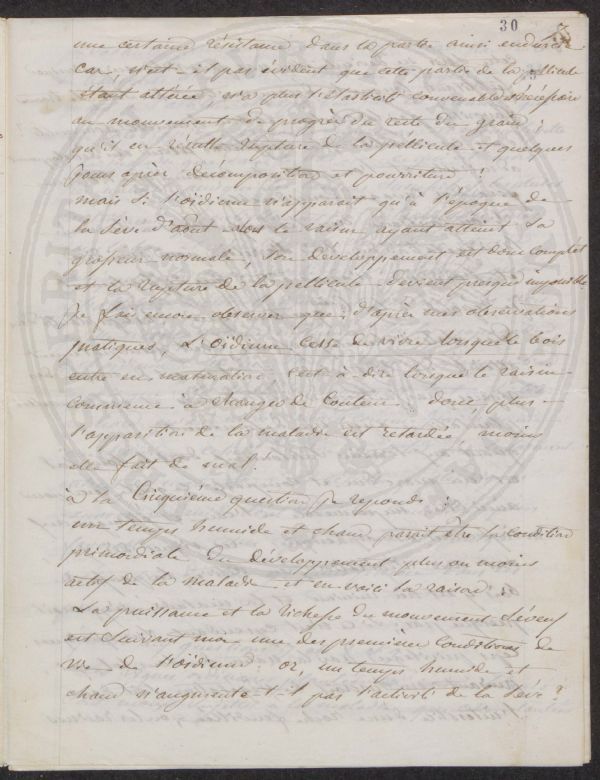 30
une certaine résistance dans la partie ainsi endurcie
Car, n'est-il pas évident que cette partie de la pellicule
étant altérée, n'a plus l'élasticité convenable nécessaire
au mouvement de progrès du reste du grain ;
qu'il en résulte rupture de la pellicule et quelques
jours après décomposition et pourriture !
mais si l'oïdium n'apparait qu'à l'époque de
la sève d'août alors le raisin ayant atteint sa
grosseur normale, son développement est donc complet
et la rupture de la pellicule devient presque impossible.
Je fais encore observer que, d'après mes observations
pratiques, L'oïdium cesse de vivre lorsque le bois
entre en maturation c'est à dire lorsque le raisin
commence à changer de couleur. donc, plus
l'apparition de la maladie est retardée, moins
elle fait de mal.
à la Cinquième question je réponds :
un temps humide et chaud parait être la condition
primordiale du développement plus ou moins
actif de la maladie et en voici la raison :
La puissance et la richesse du mouvement séveux
est suivant moi une des premières conditions de
vie de l'oïdium. or, un temps humide et
chaud n'augmente-t-il pas l'activité de la sève ?